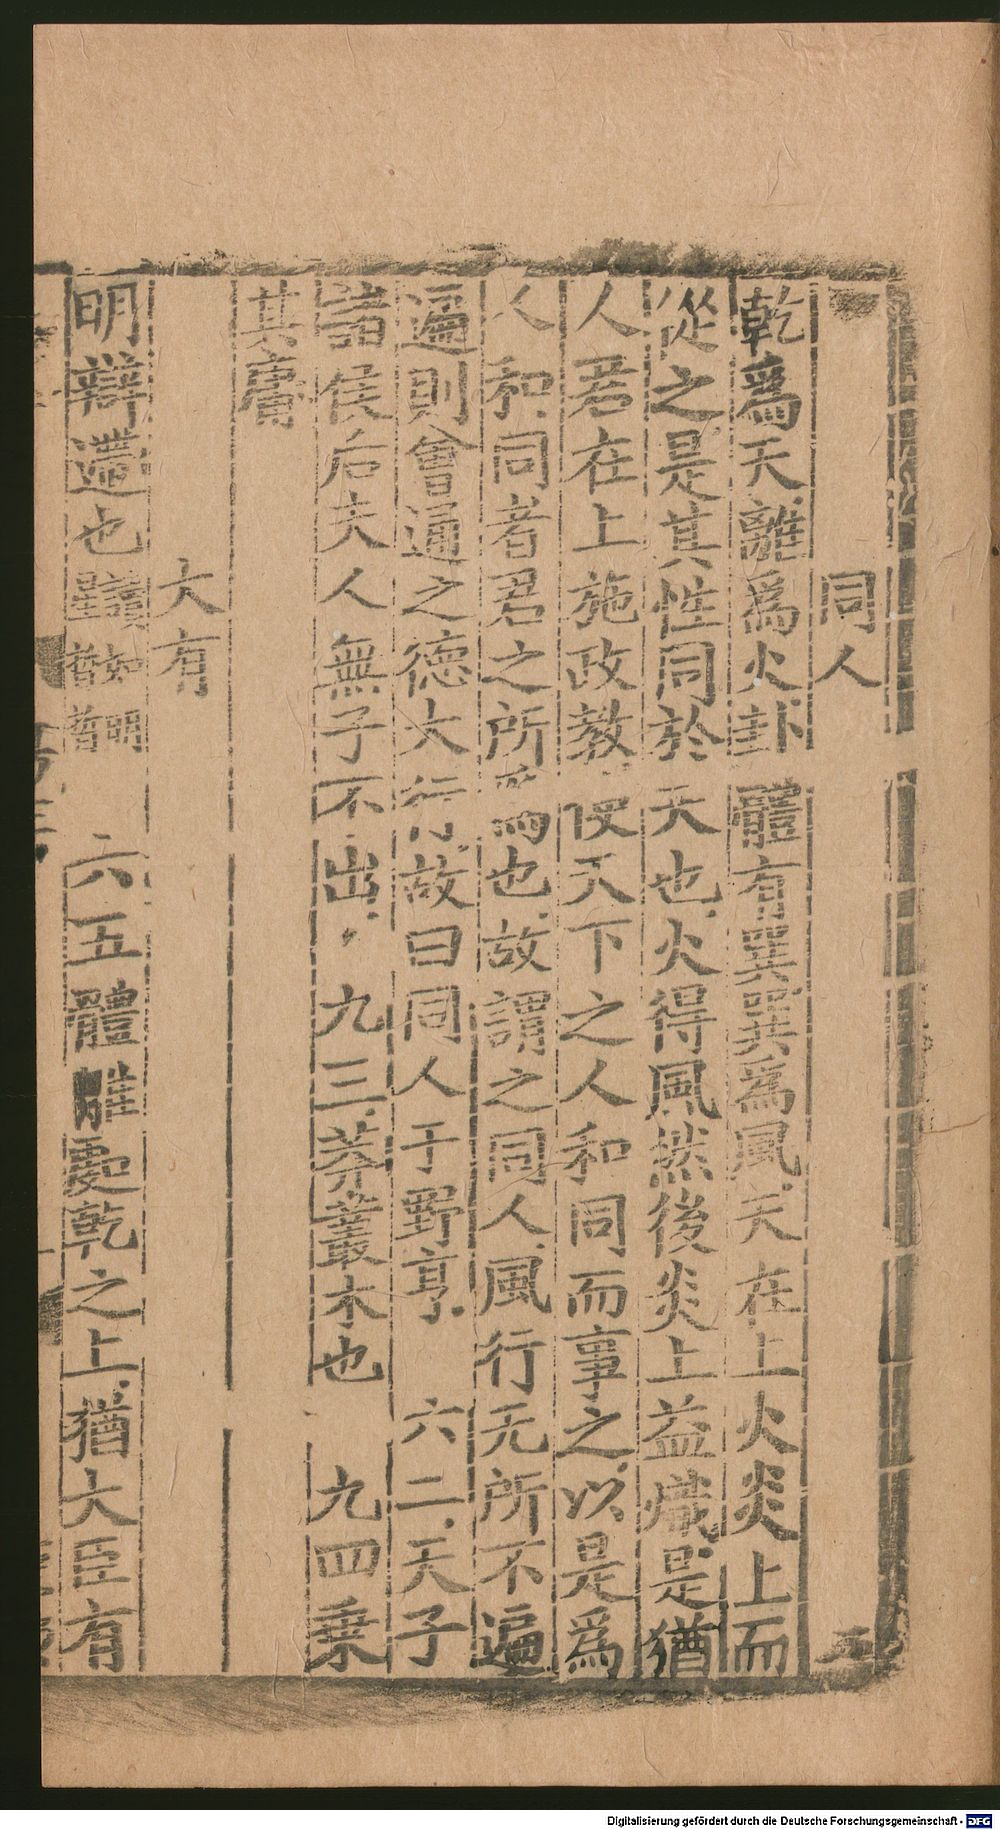 同人
乾為天離為火卦體有巽巽為風天在上火炎上而
從之是其性同於天也火得風然後炎上益熾是猶
人君在上施政教使天下之人和同而事之以是為
人和同者君之所為也故謂之同人風行无所不遍
遍則會通之德大行故曰同人于野亨 六二天子
諸侯后夫人無子不出 九三莽叢木也 九四乘
其庸
大有
明辯遰也 讀如明星晢晢 六五體離處乾之上猶大臣有
Digitalisierung gefördert durch die Deutsche Forschungsgemeinschaft - DFG